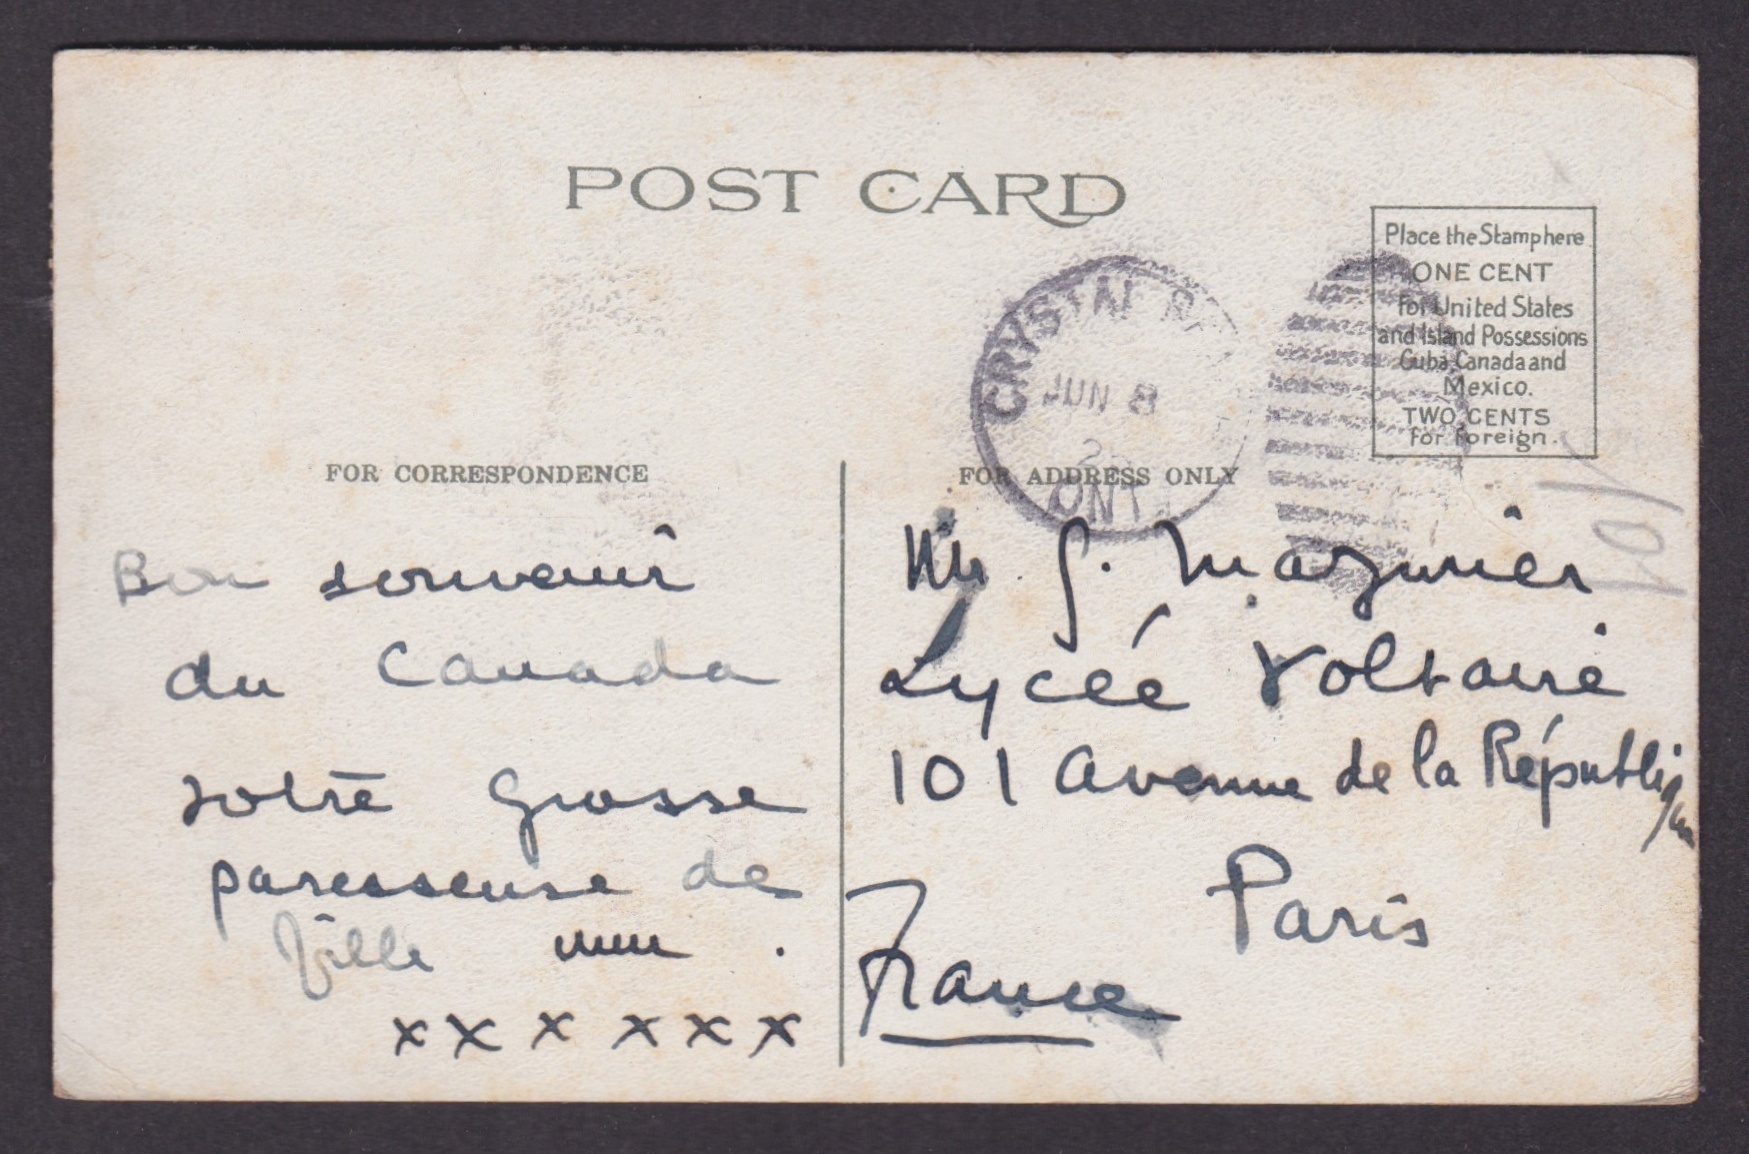 POST CARD
Place the Stamp here
ONE CENT
For United States
and Island Possessions
Cuba, Canada and
Mexico.
TWO CENTS
For Foreign.
CRYSTAL
JUN 8
ONT.
FOR CORRESPONDENCE
FOR ADDRESS ONLY
Bon souvenir
du Canada
votre grosse
paresseuse de
fille
x x x x x x
G. Mazurier
Lycée Voltaire
101 Avenue de la République
Paris
France
101